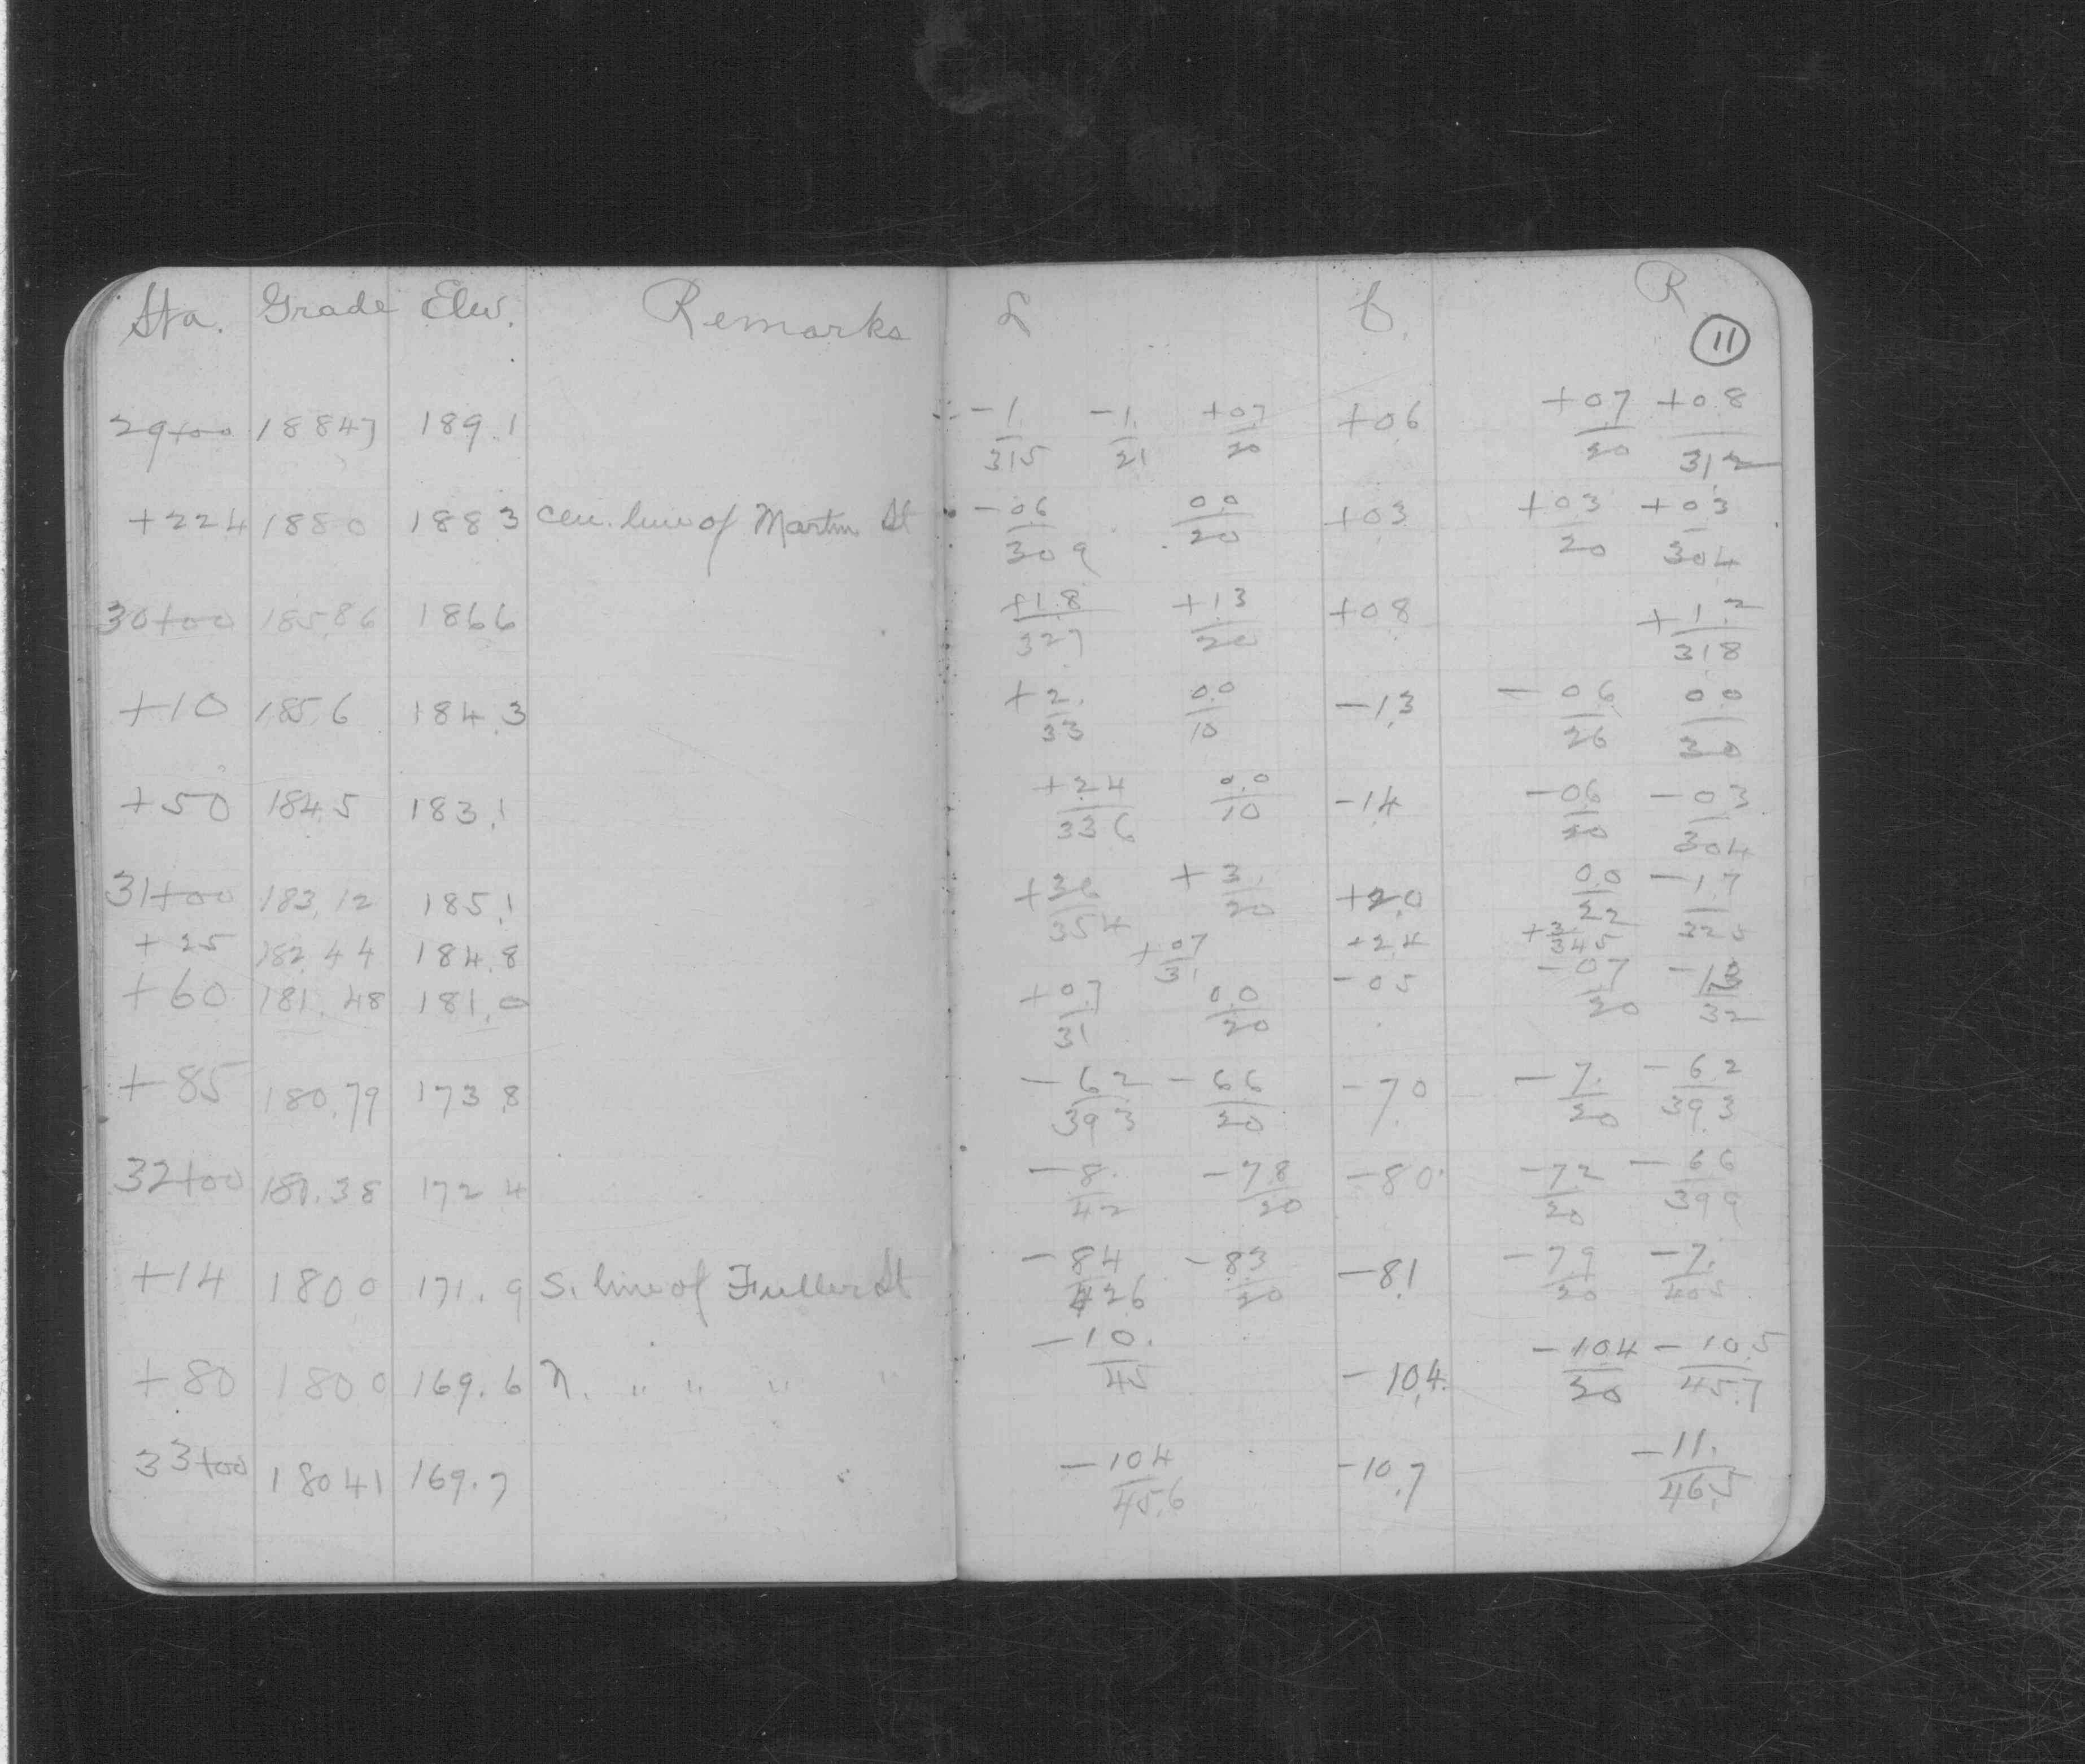 Sta. Grade Elev. Remarks L C. R
11
29+00 188.47 189.1 -1./31.5 -1./21 +0.7/20 +0.6 +0.7/20 +0.8/31.2
+22.4 188.0 188.3 Cen. line of Martin St -0.6/30.9 0.0/20 +0.3 +0.3/20 +0.3/30.4
30+00 185.86 186.6 +1.8/32.7 +1.3/20 +0.8 +1.2/31.8
+10 185.6 184.3 +2./33 0.0/10 -1.3 -0.6/26 0.0/30
+50 184.5 183.1 +2.4/33.6 0.0/10 -1.4 -0.6/20 -0.3/30.4
31+00 183.12 185.1 +3.6/35.4 +3./20 +2.0 0.0/22 -1.7/32.5
+25 182.44 184.8 +0.7/31 +2.4 +3/34.5
+60 181.48 181.0 +0.7/31 0.0/20 -0.5 -0.7/20 -1.3/32
+85 180.79 173.8 -6.2/39.3 -6.6/20 -7.0 -7./20 -6.2/39.3
32+00 180.38 172.4 -8./42 -7.8/20 -8.0 -7.2/20 -6.6/39.9
+14 180.0 171.9 S. line of Fuller St -8.4/42.6 -8.3/20 -8.1 -7.9/20 -7./40.5
+80 180.0 169.6 N. " " " " -10./45 -10.4 -10.4/20 -10.5/45.7
33+00 180.41 169.7 -10.4/45.6 -10.7 -11./46.5